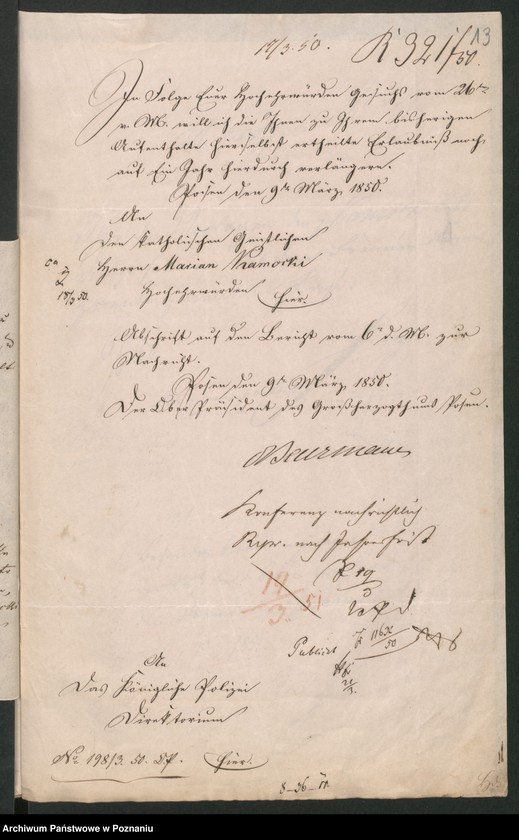 13
18/3.50.
K 321/50.
In Folge Euer Hochehrwürden Gesuchs vom 26ten
v. M. will ich die Ihnen zu Ihrem bisherigen
Aufenthalte hierselbst ertheilte Erlaubniß noch
auf Ein Jahr hierdurch verlängern.
Posen den 9ten März 1850.
An
den katholischen Geistlichen
Herrn Marian Kamocki
Hochehrwürden
hier.
18/3 50.
Abschrift auf den Bericht vom 6ten d. M. zur
Nachricht.
Posen den 9ten März 1850.
Der Ober Präsident des Großherzogthums Posen.
Beurmann
nachrichtlich
Repr. nach Jahresfrist
19/3. 51
An
Das Königliche Polizei
Direktorium
No 198/3. 50. O.P. hier.
8-26-
Archiwum Państwowe w Poznaniu